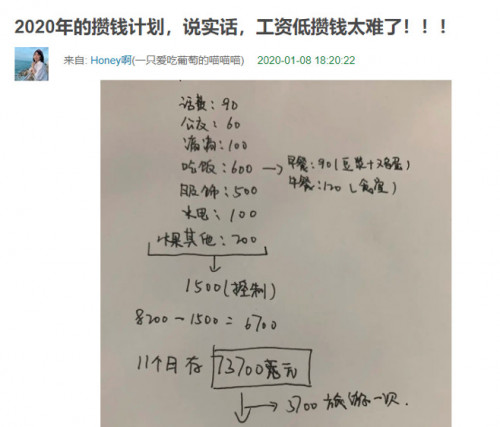 2020年的攒钱计划，说实话，工资低攒钱太难了！！！
来自: Honey啊(一只爱吃葡萄的喵喵喵) 2020-01-08 18:20:22
话费: 90
公交: 60
滴滴: 100
吃饭: 600 → 早餐: 90 (豆浆+鸡蛋)
午餐: 120 (食堂)
服饰: 500
水电: 100
水果其他: 200
1500 (控制)
8200 - 1500 = 6700
11个月存 73700元
→ 3700 旅游一次.